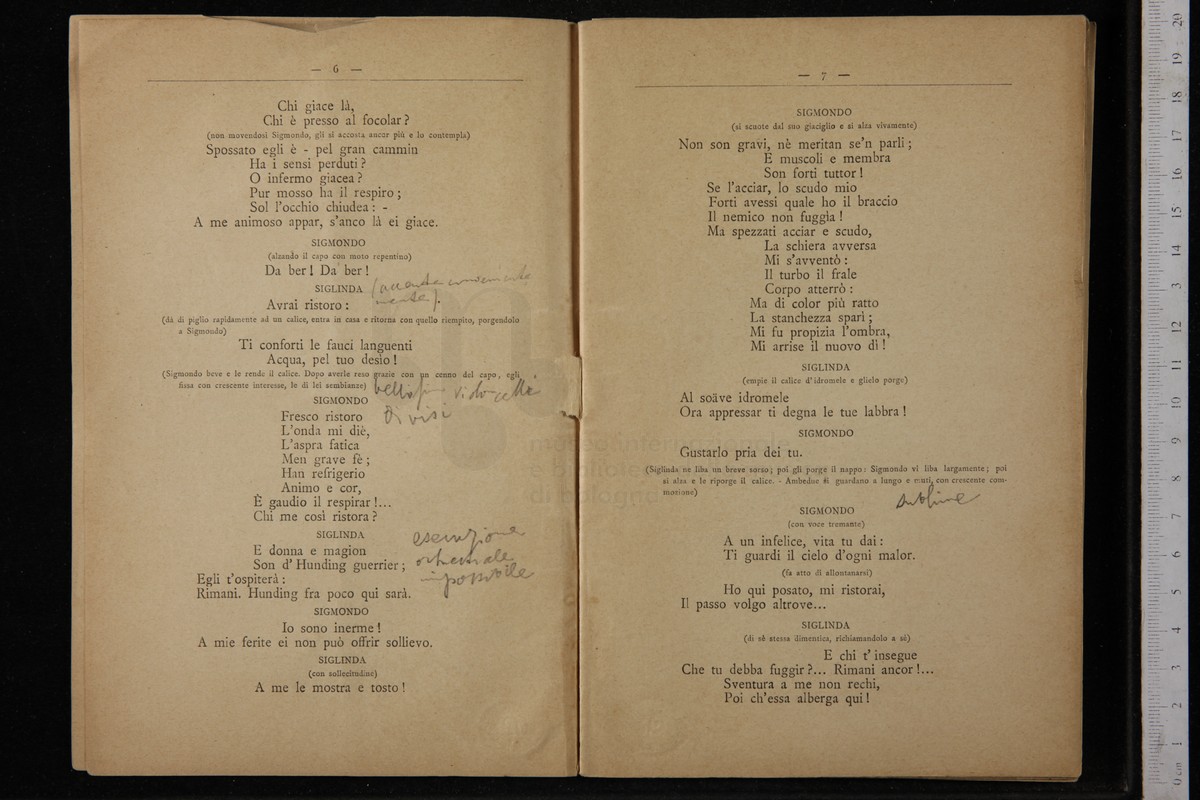 — 6 —
Chi giace là,
Chi è presso al focolar?
(non movendosi Sigmondo, gli si accosta ancor più e lo contempla)
Spossato egli è - pel gran cammin
Ha i sensi perduti?
O infermo giacea?
Pur mosso ha il respiro;
Sol l'occhio chiudea: -
A me animoso appar, s'anco là ei giace.
SIGMONDO
(alzando il capo con moto repentino)
Da ber! Da ber!
SIGLINDA
Avrai ristoro:
(dà di piglio rapidamente ad un calice, entra in casa e ritorna con quello riempito, porgendolo
a Sigmondo)
Ti conforti le fauci languenti
Acqua, pel tuo desìo!
(Sigmondo beve e le rende il calice. Dopo averle reso grazie con un cenno del capo, egli
fissa con crescente interesse, le di lei sembianze)
violoncelli
SIGMONDO
divisi
Fresco ristoro
L'onda mi diè,
L'aspra fatica
Men grave fè;
Han refrigerio
Animo e cor,
È gaudio il respirar!...
Chi me così ristora?
SIGLINDA
esecuzione
E donna e magion
Son d'Hunding guerrier;
orchestrale
Egli t'ospiterà:
impossibile
Rimani. Hunding fra poco qui sarà.
SIGMONDO
Io sono inerme!
A mie ferite ei non può offrir sollievo.
SIGLINDA
(con sollecitudine)
A me le mostra e tosto!
— 7 —
SIGMONDO
(si scuote dal suo giaciglio e si alza vivamente)
Non son gravi, nè meritan se'n parli;
E muscoli e membra
Son forti tuttor!
Se l'acciar, lo scudo mio
Forti avessi quale ho il braccio
Il nemico non fuggìa!
Ma spezzati acciar e scudo,
La schiera avversa
Mi s'avventò:
Il turbo il frale
Corpo atterrò:
Ma di color più ratto
La stanchezza sparì;
Mi fu propizia l'ombra,
Mi arrise il nuovo dì!
SIGLINDA
(empie il calice d'idromele e glielo porge)
Al soäve idromele
Ora appressar ti degna le tue labbra!
SIGMONDO
Gustarlo pria dei tu.
(Siglinda ne liba un breve sorso; poi gli porge il nappo: Sigmondo vi liba largamente; poi
si alza e le riporge il calice. - Ambedue si guardano a lungo e muti, con crescente com-
mozione)
sublime
SIGMONDO
(con voce tremante)
A un infelice, vita tu dai:
Ti guardi il cielo d'ogni malor.
(fa atto di allontanarsi)
Ho qui posato, mi ristorai,
Il passo volgo altrove...
SIGLINDA
(di sè stessa dimentica, richiamandolo a sè)
E chi t'insegue
Che tu debba fuggir?... Rimani ancor!...
Sventura a me non rechi,
Poi ch'essa alberga qui!
museo internazionale
e biblioteca
di bologna
0 cm 1 2 3 4 5 6 7 8 9 10 11 12 13 14 15 16 17 18 19 20